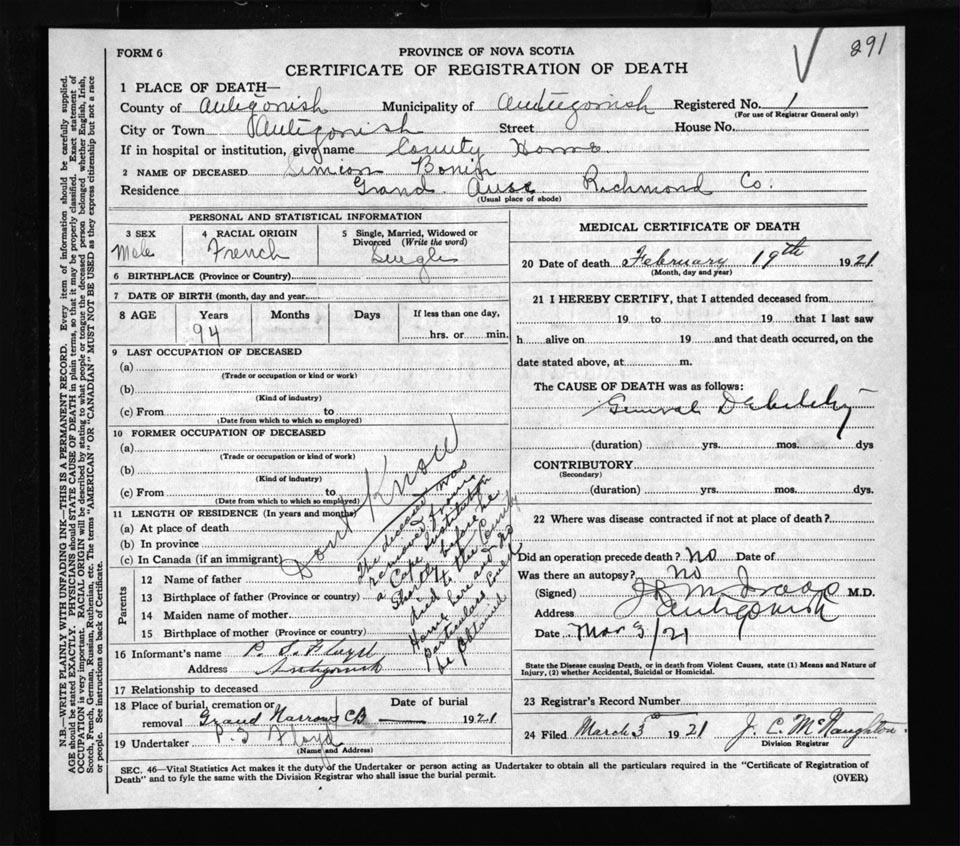 FORM 6
PROVINCE OF NOVA SCOTIA
CERTIFICATE OF REGISTRATION OF DEATH
291
1 PLACE OF DEATH—
County of Antigonish Municipality of Antigonish Registered No. 1
(For use of Registrar General only)
City or Town Antigonish Street House No.
If in hospital or institution, give name County Home
2 NAME OF DECEASED Simeon
Residence Grand Anse Richmond Co.
(Usual place of abode)
PERSONAL AND STATISTICAL INFORMATION
3 SEX 4 RACIAL ORIGIN 5 Single, Married, Widowed or Divorced (Write the word)
Male French Single
6 BIRTHPLACE (Province or Country)
7 DATE OF BIRTH (month, day and year
8 AGE Years Months Days If less than one day,
94 hrs. or min.
9 LAST OCCUPATION OF DECEASED
(a)
(Trade or occupation or kind or work)
(b)
(Kind of industry)
(c) From to
(Date from which to which so employed)
10 FORMER OCCUPATION OF DECEASED
(a)
(Trade or occupation or kind of work)
(b)
(Kind of industry)
(c) From to
(Date from which to which so employed)
11 LENGTH OF RESIDENCE (In years and months)
(a) At place of death
(b) In province
(c) In Canada (if an immigrant)
Dont Know
The deceased was
removed from
a Cape institution
shortly before he
died to the County
Home here and no
particulars could
be obtained
Parents
12 Name of father
13 Birthplace of father (Province or country)
14 Maiden name of mother
15 Birthplace of mother (Province or country)
16 Informant's name P. S. Floyd
Address Antigonish
17 Relationship to deceased
18 Place of burial, cremation or removal Grand Narrows CB Date of burial 1921
19 Undertaker P. S Floyd
(Name and Address)
MEDICAL CERTIFICATE OF DEATH
20 Date of death February 19th 1921
(Month, day and year)
21 I HEREBY CERTIFY, that I attended deceased from
19 to 19 that I last saw
h alive on 19 and that death occurred, on the
date stated above, at m.
The CAUSE OF DEATH was as follows:
General Debility
(duration) yrs. mos. dys
CONTRIBUTORY
(Secondary)
(duration) yrs. mos. dys.
22 Where was disease contracted if not at place of death?
Did an operation precede death? no Date of
Was there an autopsy? no
(Signed) M.D.
Address Antigonish
Date Mar 3/21
State the Disease causing Death, or in death from Violent Causes, state (1) Means and Nature of
Injury, (2) whether Accidental, Suicidal or Homicidal.
23 Registrar's Record Number
24 Filed March 3rd 1921 J. C. McNaughton
Division Registrar
SEC. 46—Vital Statistics Act makes it the duty of the Undertaker or person acting as Undertaker to obtain all the particulars required in the "Certificate of Registration of
Death" and to fyle the same with the Division Registrar who shall issue the burial permit.
(OVER)
N.B.—WRITE PLAINLY WITH UNFADING INK—THIS IS A PERMANENT RECORD. Every item of information should be carefully supplied.
AGE should be stated EXACTLY. PHYSICIANS should STATE CAUSE OF DEATH in plain terms, so that it may be properly classified. Exact statement of
OCCUPATION is very important. RACIAL ORIGIN will be described by stating to what people or tongue the deceased person belonged, whether English, Irish,
Scotch, French, German, Russian, Ruthenian, etc. The terms "AMERICAN" OR "CANADIAN" MUST NOT BE USED as they express citizenship but not a race
or people. See instructions on back of Certificate.